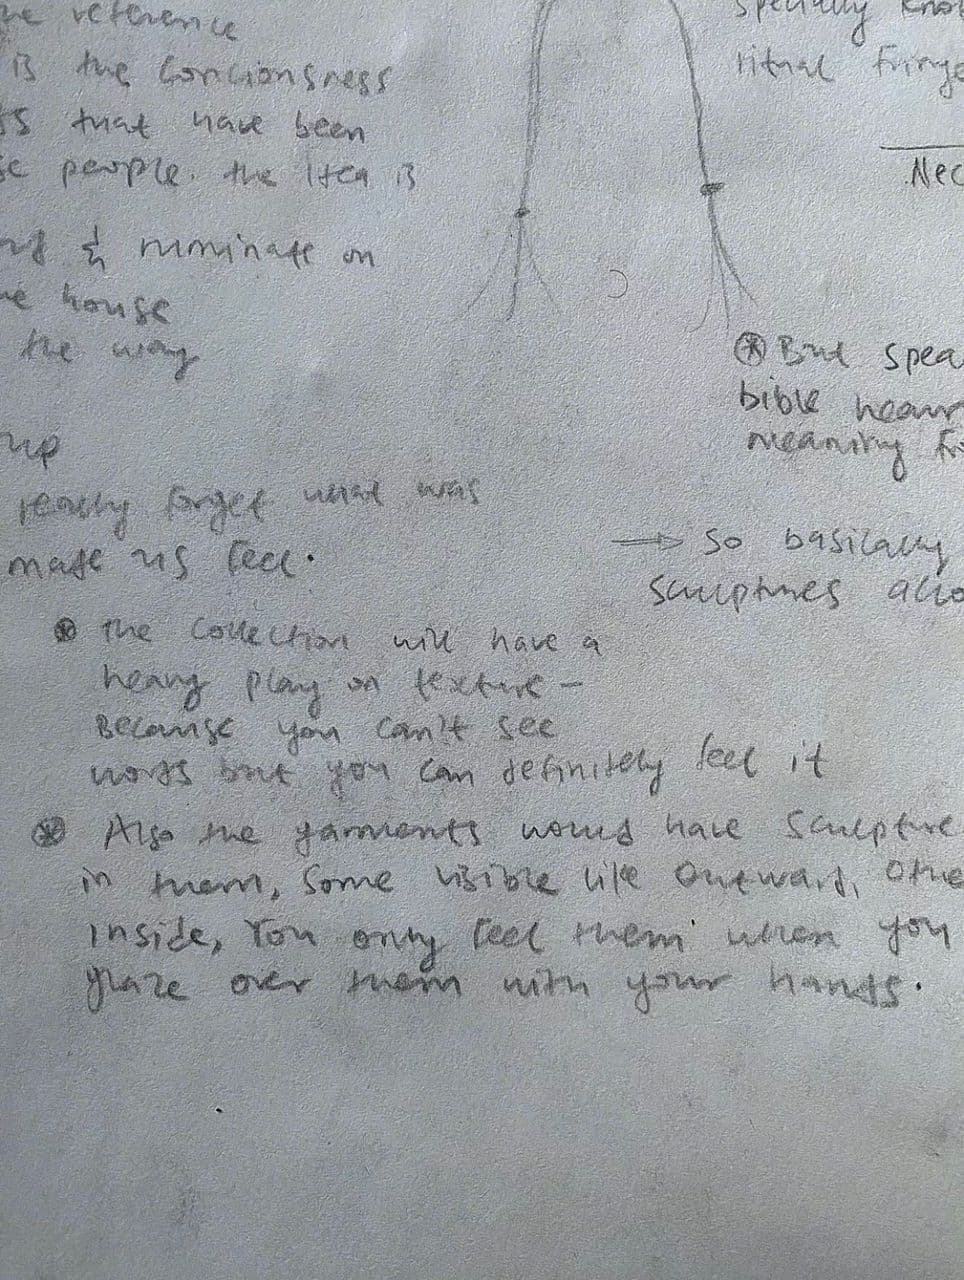 reference
is the Conciousness
that have been
people. the Idea is
& ruminate on
house
the way
up
really forget what was
made us feel.
⊛ The Collection will have a
heavy play on texture -
Because you can't see
words but you can definitely feel it
⊛ Also the garments would have Sculpture
in them, Some visible like Outward, Othe
inside, You only feel them when you
graze over them with your hands.
specially kno
ritual fringe
Nec
⊛ But spea
bible
meaning
→ So basically
sculptures